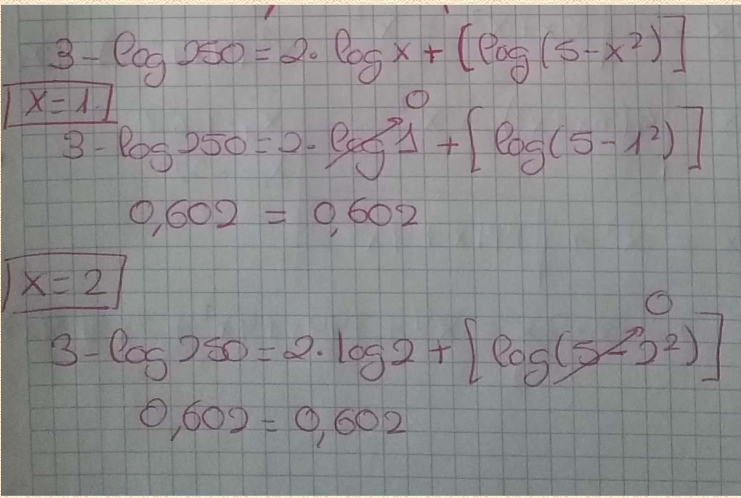 3 - log 250 = 2. log x + [log (5 - x²)]
x = 1
0
3 - log 250 = 2. log 1 + [log (5 - 1²)]
0,602 = 0,602
x = 2
0
3 - log 250 = 2. log 2 + [log (5 - 2²)]
0,602 = 0,602